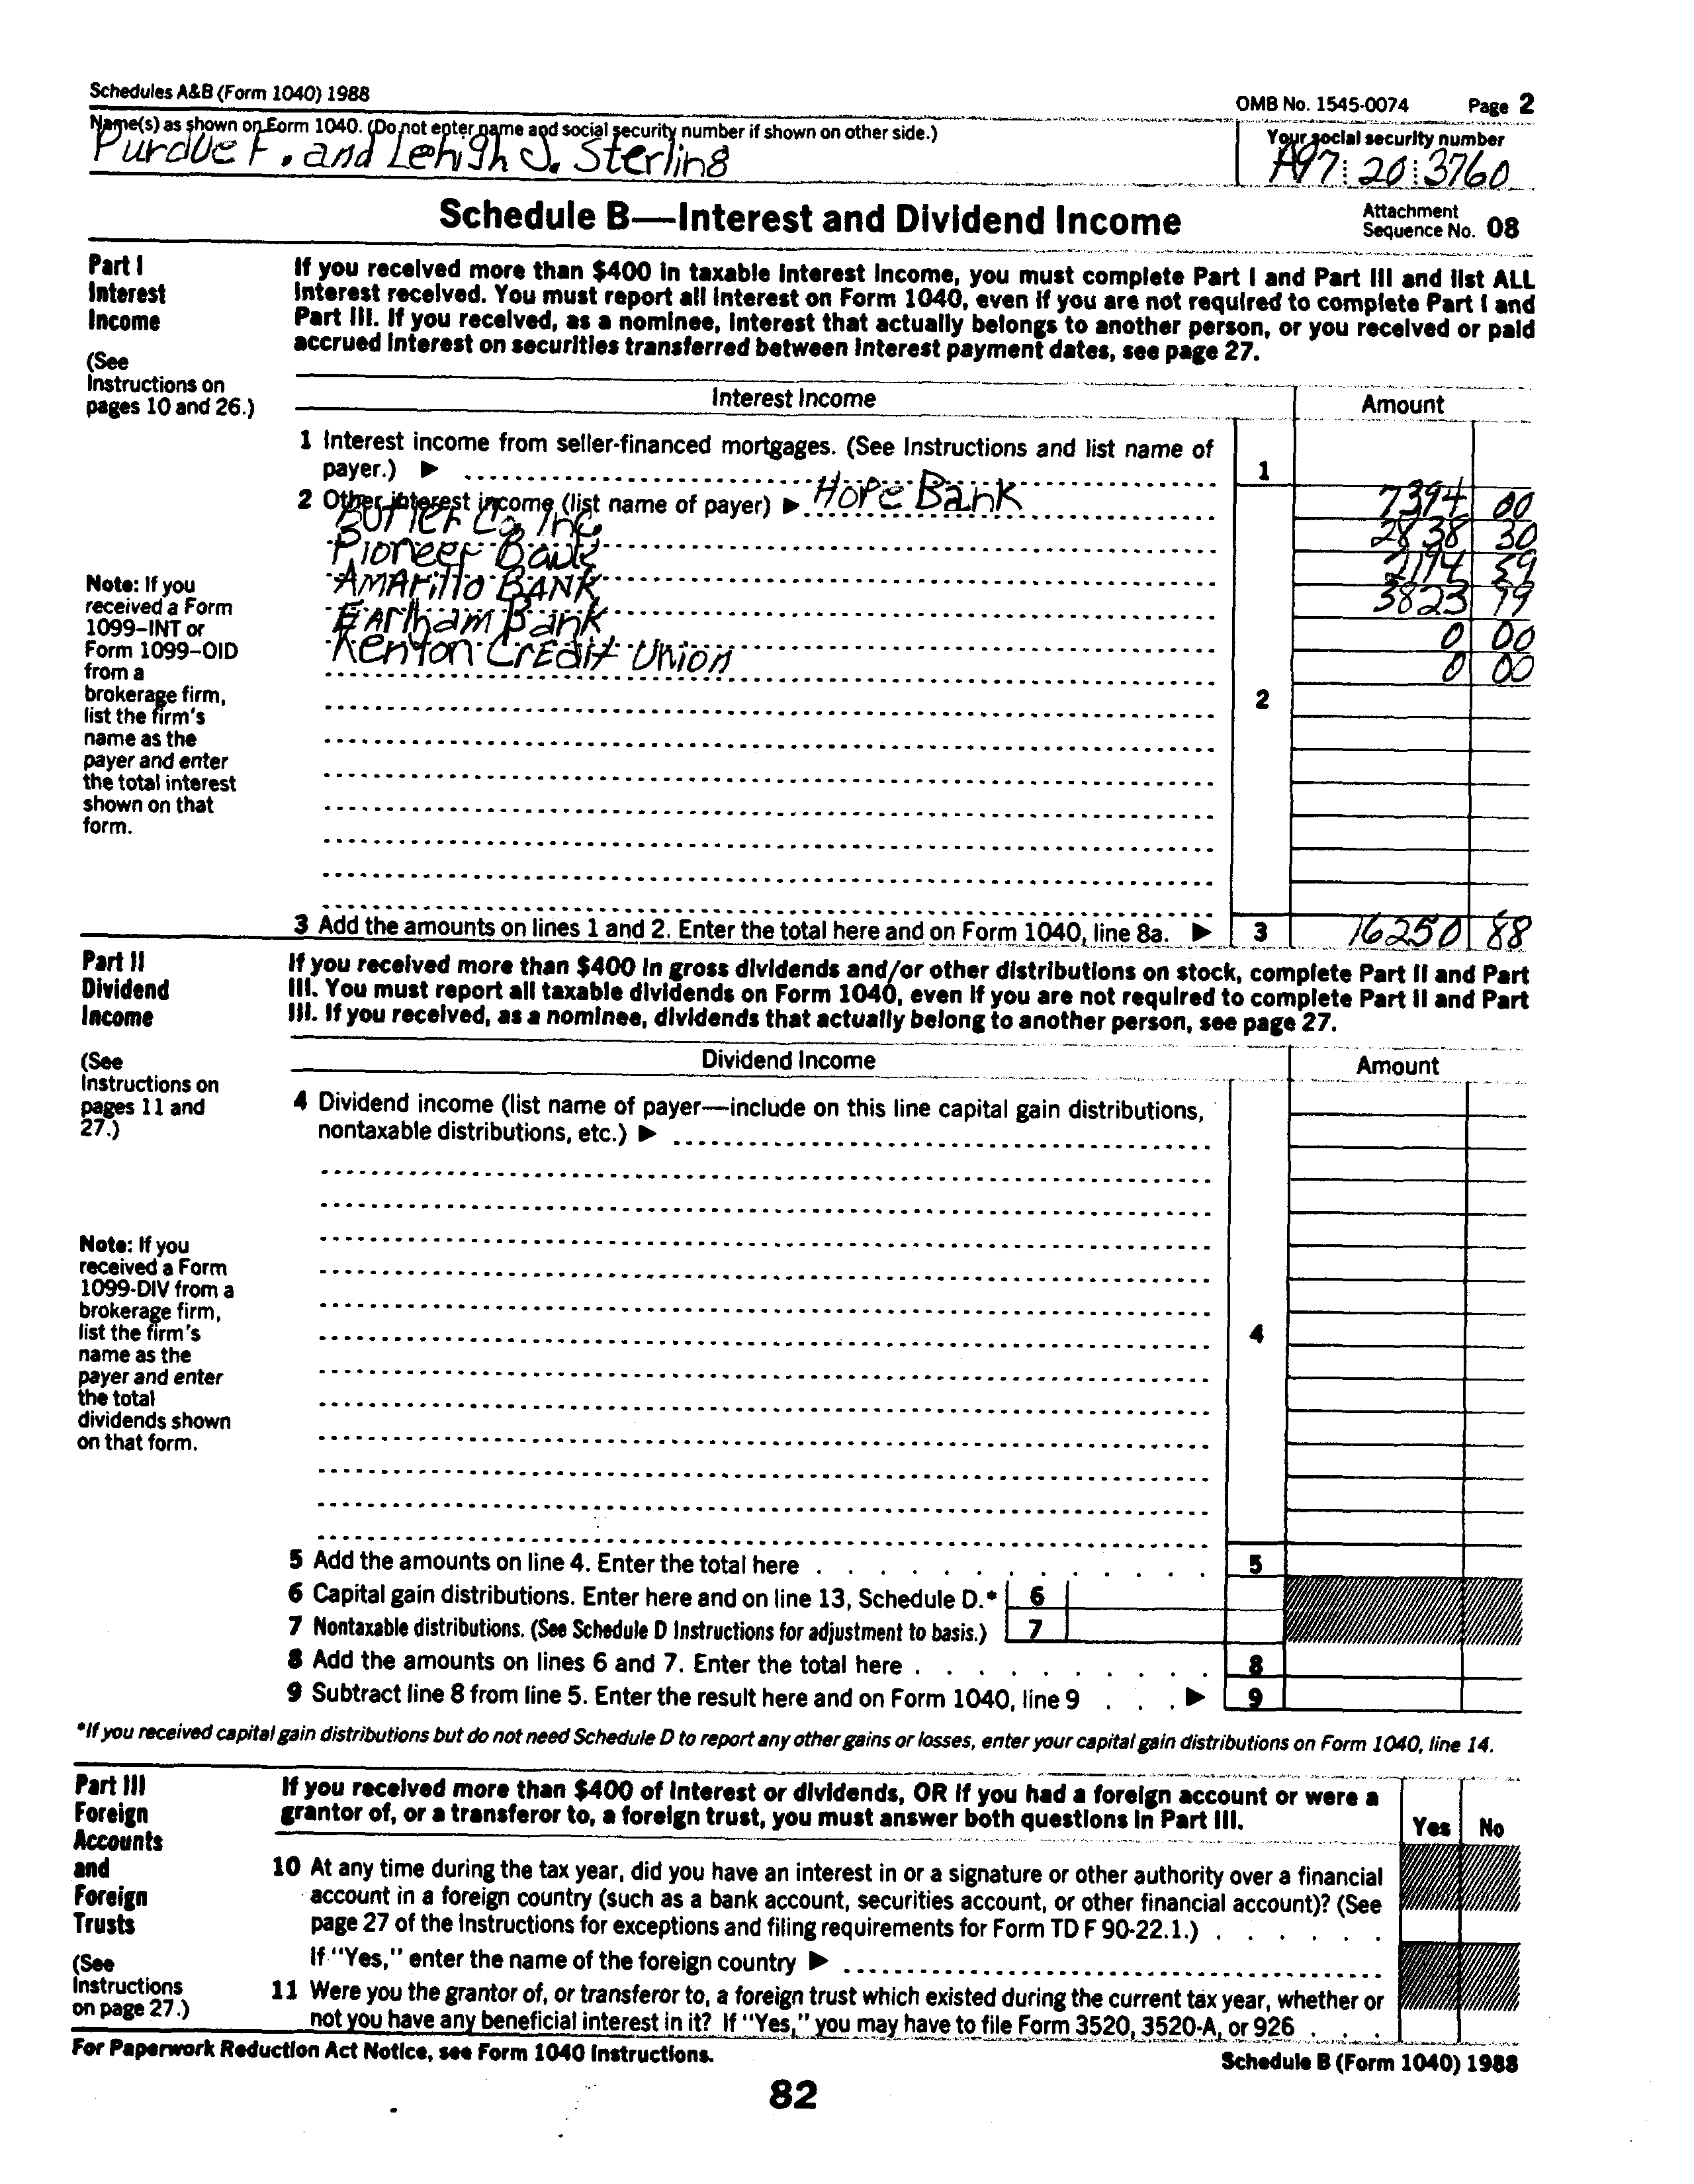 Schedules A&B (Form 1040) 1988
OMB No. 1545-0074 Page 2
Name(s) as shown on Form 1040. (Do not enter name and social security number if shown on other side.)
Your social security number
Purdue F. and Lehigh J. Sterling
A97 20 3760
Schedule B—Interest and Dividend Income
Attachment
Sequence No. 08
Part I
Interest
Income
(See
Instructions on
pages 10 and 26.)
If you received more than $400 in taxable interest income, you must complete Part I and Part III and list ALL
interest received. You must report all interest on Form 1040, even if you are not required to complete Part I and
Part III. If you received, as a nominee, interest that actually belongs to another person, or you received or paid
accrued interest on securities transferred between interest payment dates, see page 27.
Interest Income
Amount
1 Interest income from seller-financed mortgages. (See Instructions and list name of
payer.) ▶
1
2 Other interest income (list name of payer) ▶ Hope Bank
7394 00
Butler Co, Inc.
2838 30
Pioneer Bank
2194 59
AMArillo BANK
3823 99
EArlham Bank
0 00
Kenyon CrEdit Union
0 00
2
Note: If you
received a Form
1099–INT or
Form 1099–OID
from a
brokerage firm,
list the firm's
name as the
payer and enter
the total interest
shown on that
form.
3 Add the amounts on lines 1 and 2. Enter the total here and on Form 1040, line 8a. ▶ 3 16250 88
Part II
Dividend
Income
(See
Instructions on
pages 11 and
27.)
If you received more than $400 in gross dividends and/or other distributions on stock, complete Part II and Part
III. You must report all taxable dividends on Form 1040, even if you are not required to complete Part II and Part
III. If you received, as a nominee, dividends that actually belong to another person, see page 27.
Dividend Income
Amount
4 Dividend income (list name of payer—include on this line capital gain distributions,
nontaxable distributions, etc.) ▶
4
Note: If you
received a Form
1099-DIV from a
brokerage firm,
list the firm's
name as the
payer and enter
the total
dividends shown
on that form.
5 Add the amounts on line 4. Enter the total here . . . . . . . . . . . . 5
6 Capital gain distributions. Enter here and on line 13, Schedule D.* 6
7 Nontaxable distributions. (See Schedule D Instructions for adjustment to basis.) 7
8 Add the amounts on lines 6 and 7. Enter the total here . . . . . . . . . . 8
9 Subtract line 8 from line 5. Enter the result here and on Form 1040, line 9 . . . ▶ 9
*If you received capital gain distributions but do not need Schedule D to report any other gains or losses, enter your capital gain distributions on Form 1040, line 14.
Part III
Foreign
Accounts
and
Foreign
Trusts
(See
Instructions
on page 27.)
If you received more than $400 of interest or dividends, OR if you had a foreign account or were a
grantor of, or a transferor to, a foreign trust, you must answer both questions in Part III.
Yes No
10 At any time during the tax year, did you have an interest in or a signature or other authority over a financial
account in a foreign country (such as a bank account, securities account, or other financial account)? (See
page 27 of the Instructions for exceptions and filing requirements for Form TD F 90-22.1.) . . . . . .
If "Yes," enter the name of the foreign country ▶
11 Were you the grantor of, or transferor to, a foreign trust which existed during the current tax year, whether or
not you have any beneficial interest in it? If "Yes," you may have to file Form 3520, 3520-A, or 926 . . .
For Paperwork Reduction Act Notice, see Form 1040 Instructions.
Schedule B (Form 1040) 1988
82